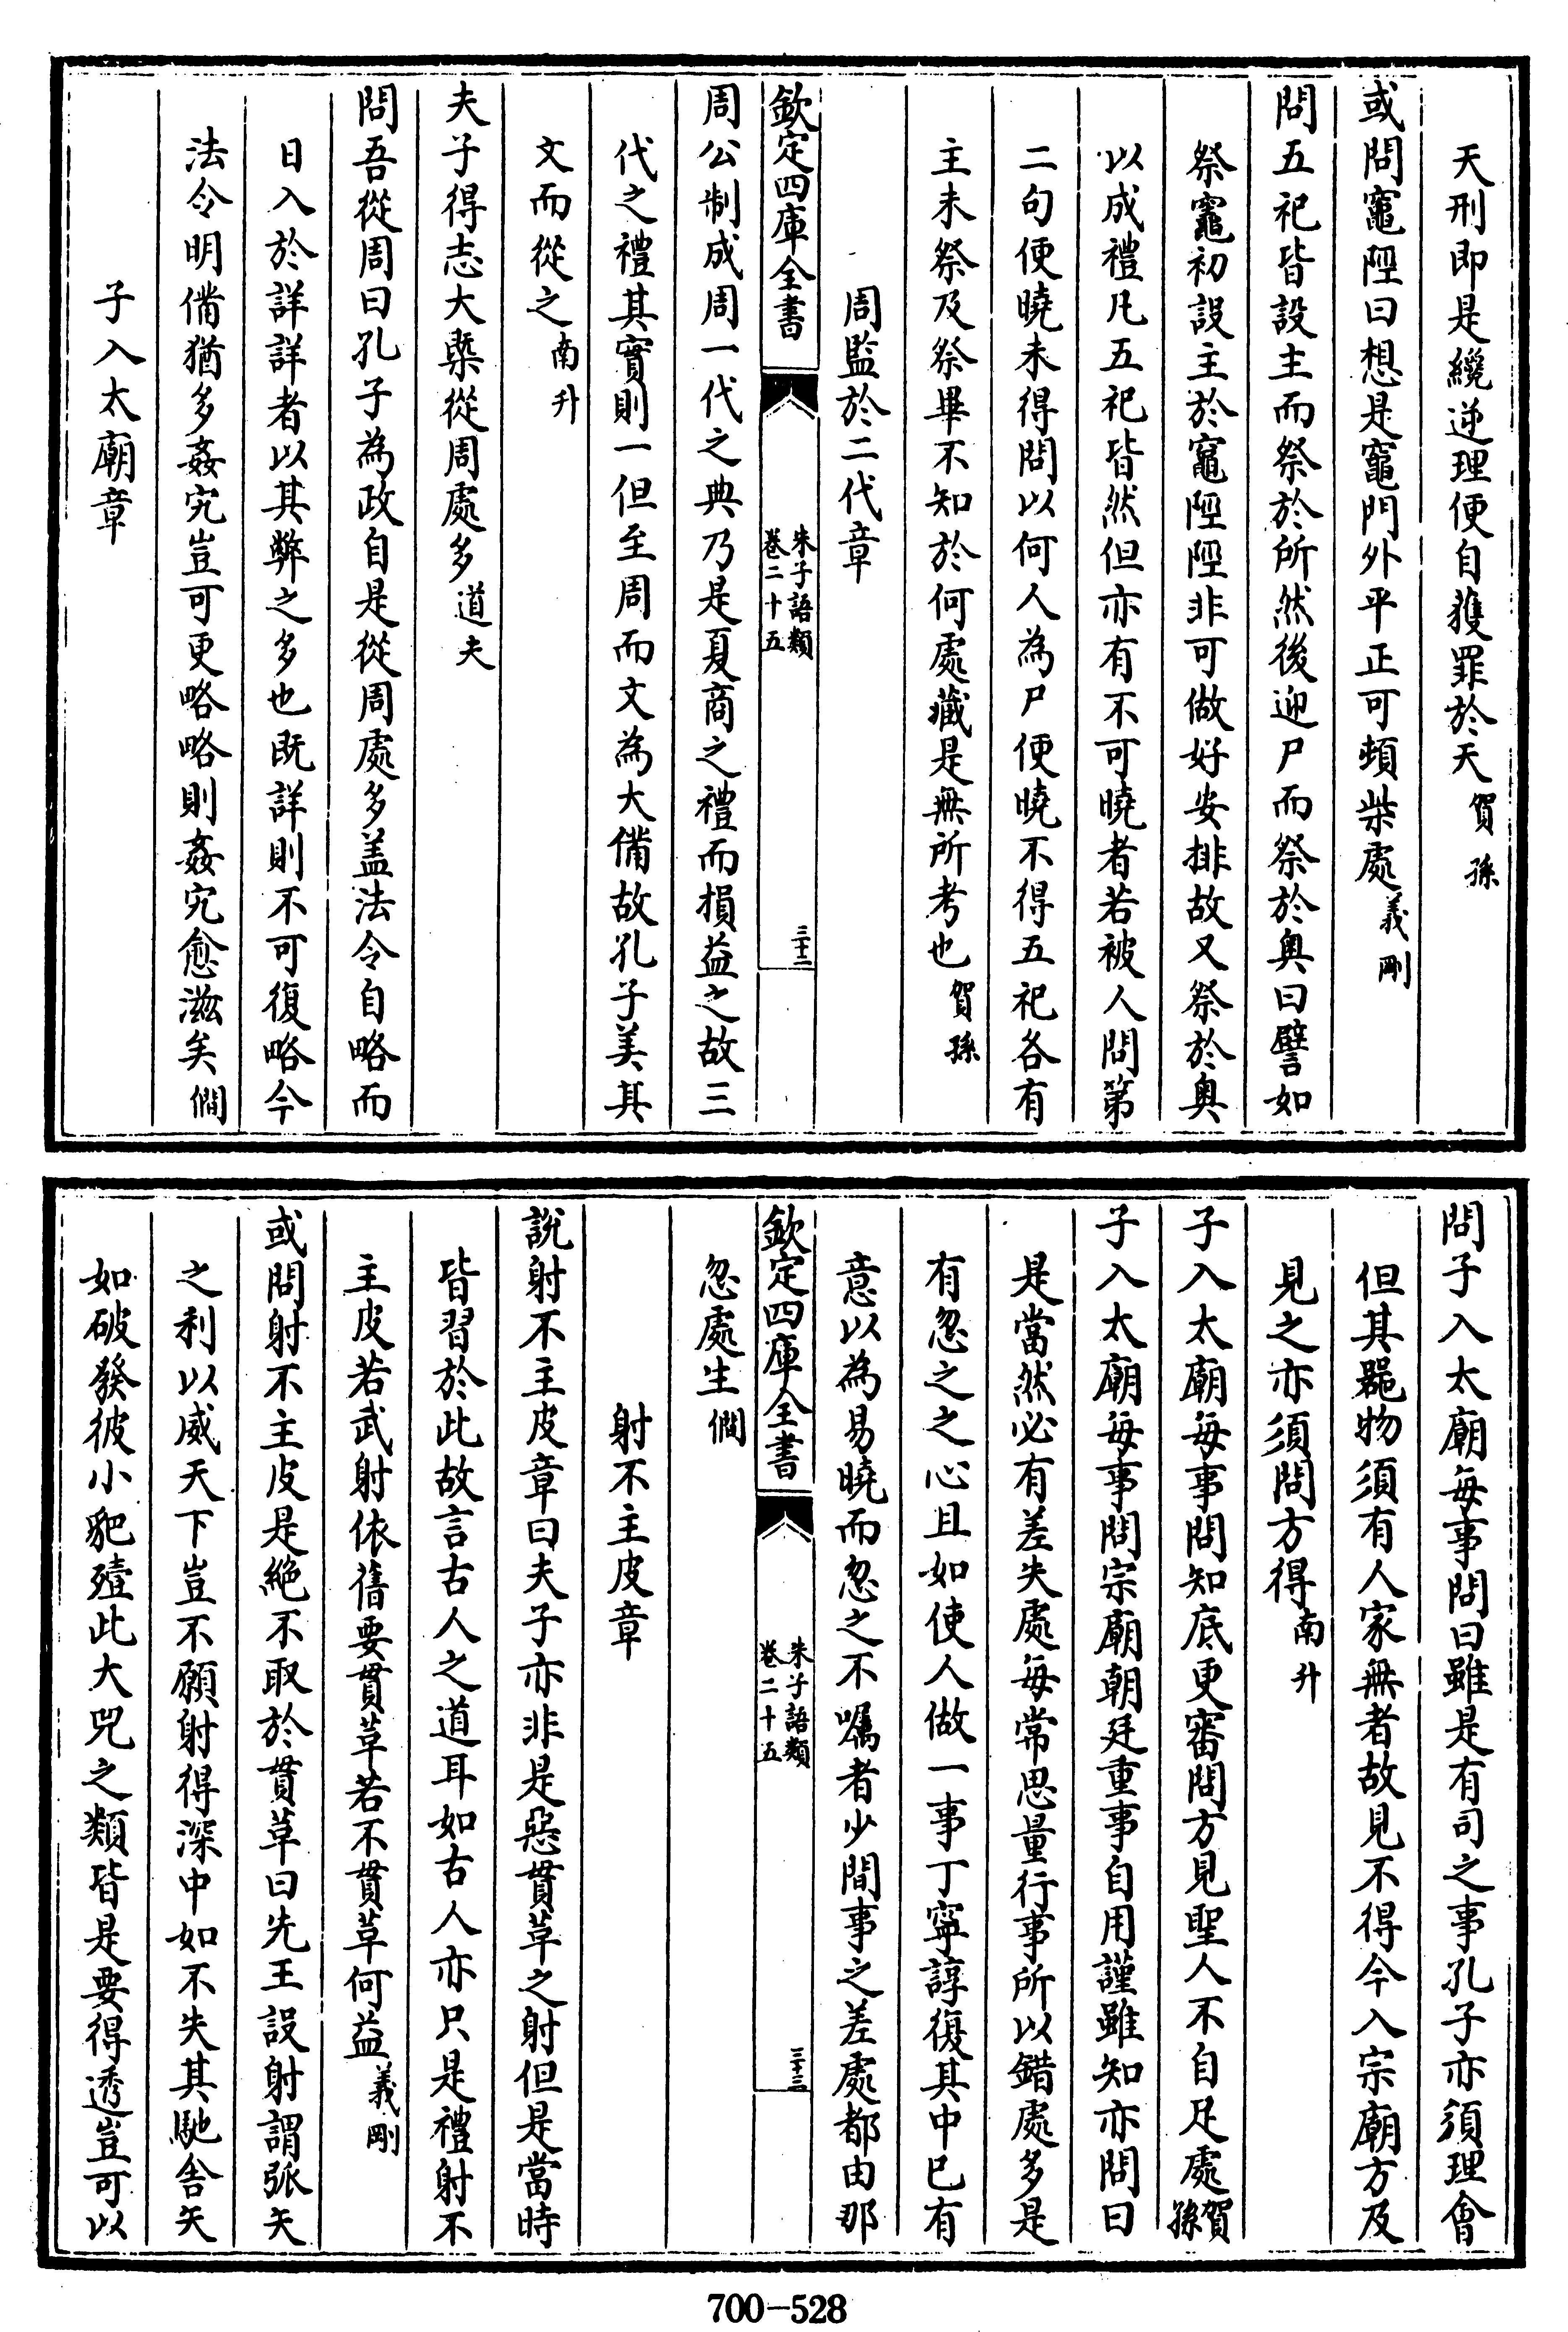 天刑即是纔逆理便自獲罪於天賀孫
或問竈陘曰想是竈門外平正可頓柴處義剛
問五祀皆設主而祭於所然後迎尸而祭於奥曰譬如
祭竈初設主於竈陘陘非可做好安排故又祭於奥
以成禮凡五祀皆然但亦有不可曉者若被人問第
二句便曉未得問以何人為尸便曉不得五祀各有
主未祭及祭畢不知於何處藏是無所考也賀孫
周監於二代章
欽定四庫全書
朱子語類
卷二十五
三十二
周公制成周一代之典乃是夏商之禮而損益之故三
代之禮其實則一但至周而文為大備故孔子美其
文而從之南升
夫子得志大槩從周處多道夫
問吾從周曰孔子為政自是從周處多盖法令自略而
日入於詳詳者以其弊之多也既詳則不可復略今
法令明備猶多姦宄豈可更略略則姦宄愈滋矣僩
子入太廟章
問子入太廟每事問曰雖是有司之事孔子亦須理會
但其噐物須有人家無者故見不得今入宗廟方及
見之亦須問方得南升
子入太廟每事問知底更審問方見聖人不自足處賀孫
子入太廟每事問宗廟朝廷重事自用謹雖知亦問曰
是當然必有差失處每常思量行事所以錯處多是
有忽之之心且如使人做一事丁寧諄復其中已有
意以為易曉而忽之不囑者少間事之差處都由那
欽定四庫全書
朱子語類
卷二十五
三十三
忽處生僩
射不主皮章
說射不主皮章曰夫子亦非是惡貫革之射但是當時
皆習於此故言古人之道耳如古人亦只是禮射不
主皮若武射依舊要貫革若不貫革何益義剛
或問射不主皮是絶不取於貫革曰先王設射謂弧矢
之利以威天下豈不願射得深中如不失其馳舍矢
如破發彼小豝殪此大兕之類皆是要得透豈可以
700-528